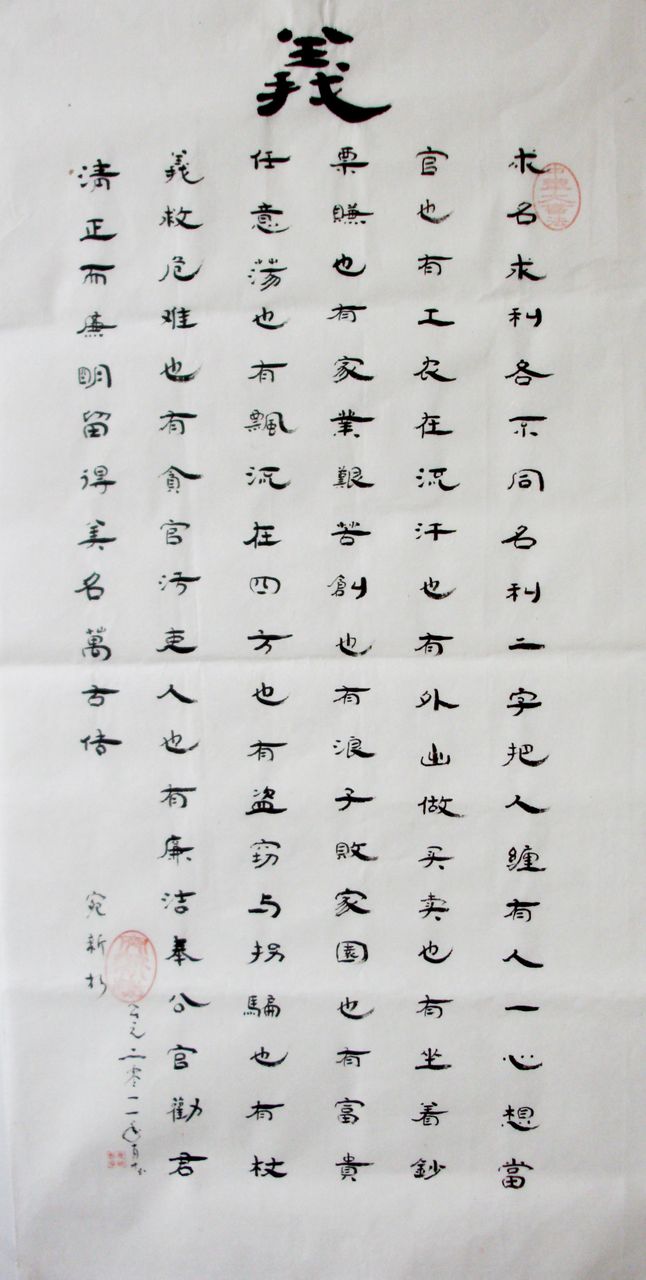 義
求名求利各不同名利二字把人纏有人一心想當
官也有工农在流汗也有外出做买卖也有坐着鈔
票賺也有家業艱苦創也有浪子敗家園也有富貴
任意荡也有飄流在四方也有盗窃与拐騙也有杖
義救危难也有貪官污吏人也有廉洁奉公官勸君
清正而廉明留得美名萬古传
宛新
公元二零一一年